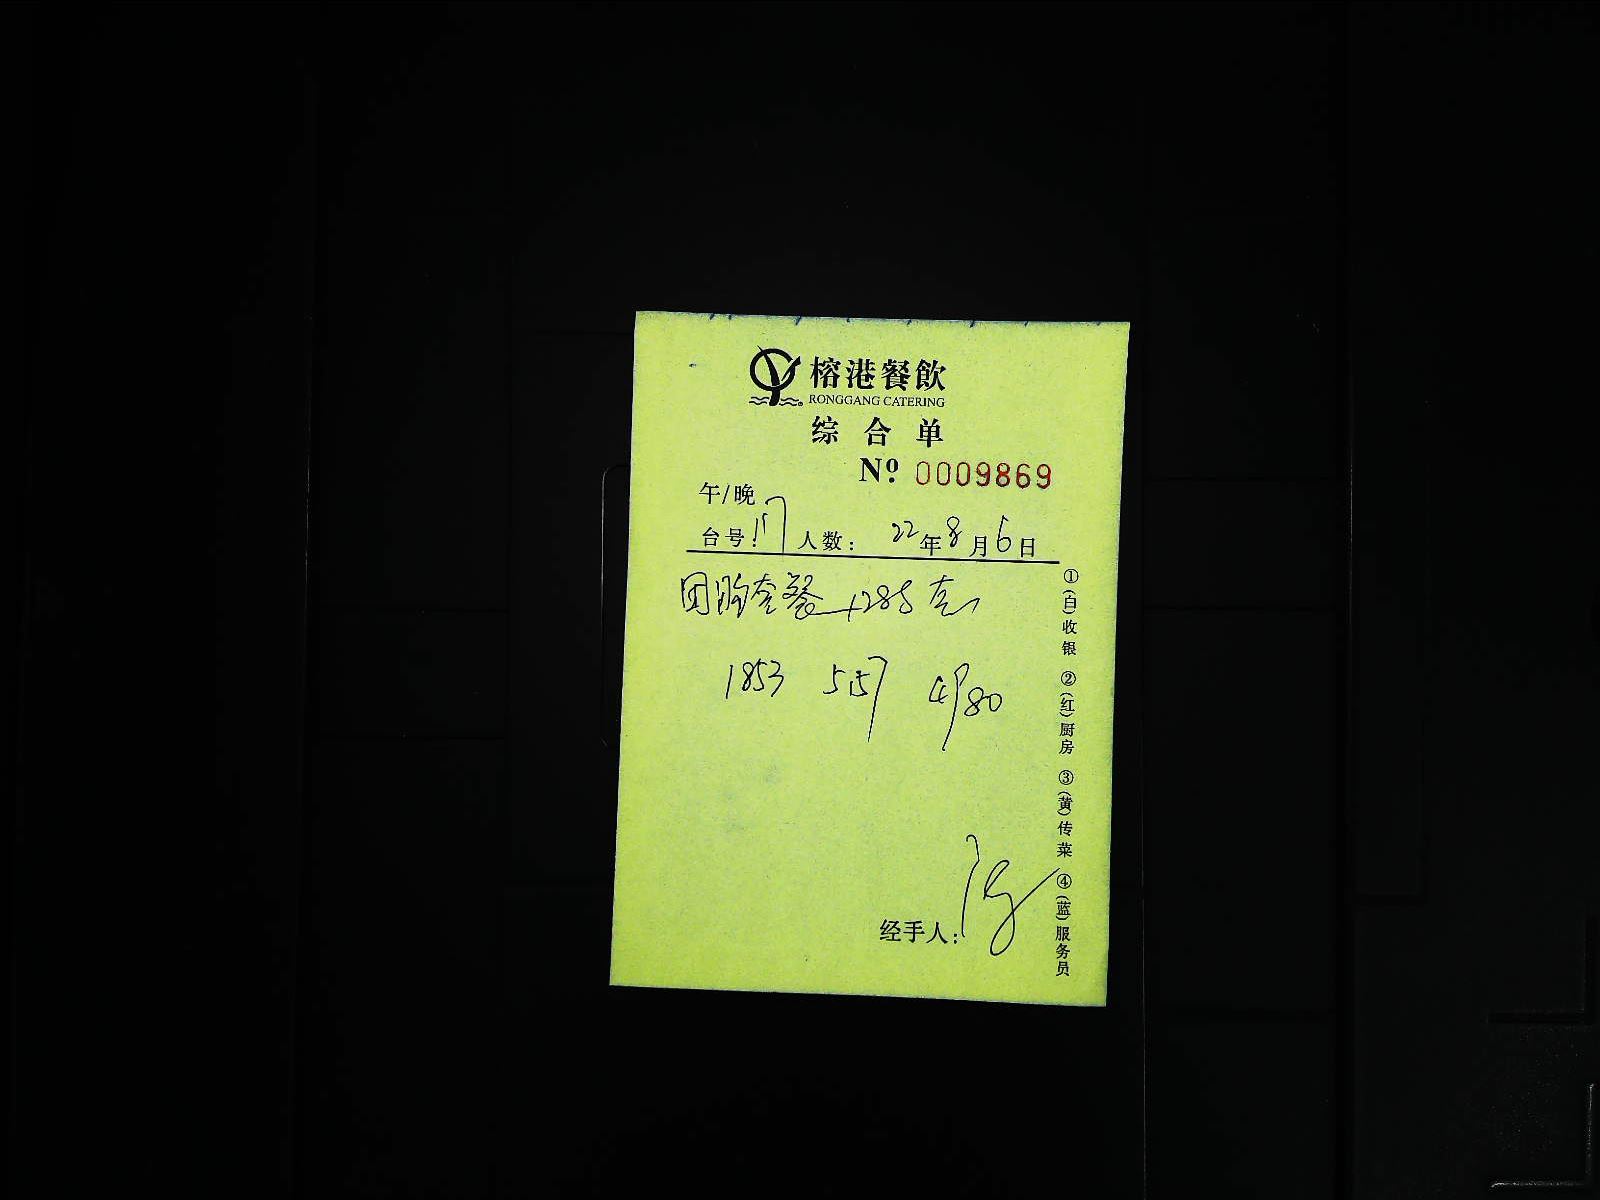 榕港餐飲
RONGGANG CATERING
综合单
№ 0009869
午/晚
台号: 人数: 22年8月6日
团购套餐+285克
1853 5157 4980
经手人:
①(白)收银 ②(红)厨房 ③(黄)传菜 ④(蓝)服务员